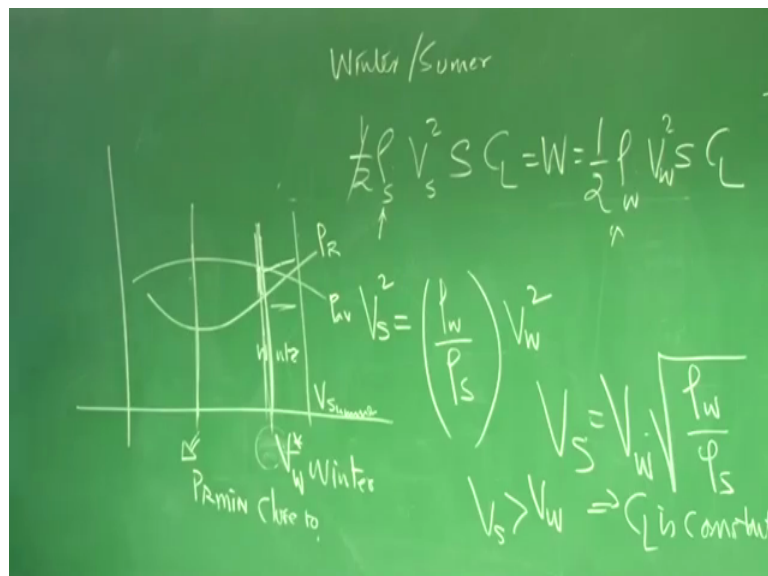 Winter/Sumer
1/2 ρ_S V_S^2 S C_L = W = 1/2 ρ_W V_W^2 S C_L
P_R
P_AV
V_S^2 = (ρ_W/ρ_S) V_W^2
V_Summer
V_S = V_W √(ρ_W/ρ_S)
V_W^* Winter
P_RMIN Close to
V_S > V_W ⇒ C_L is constnt